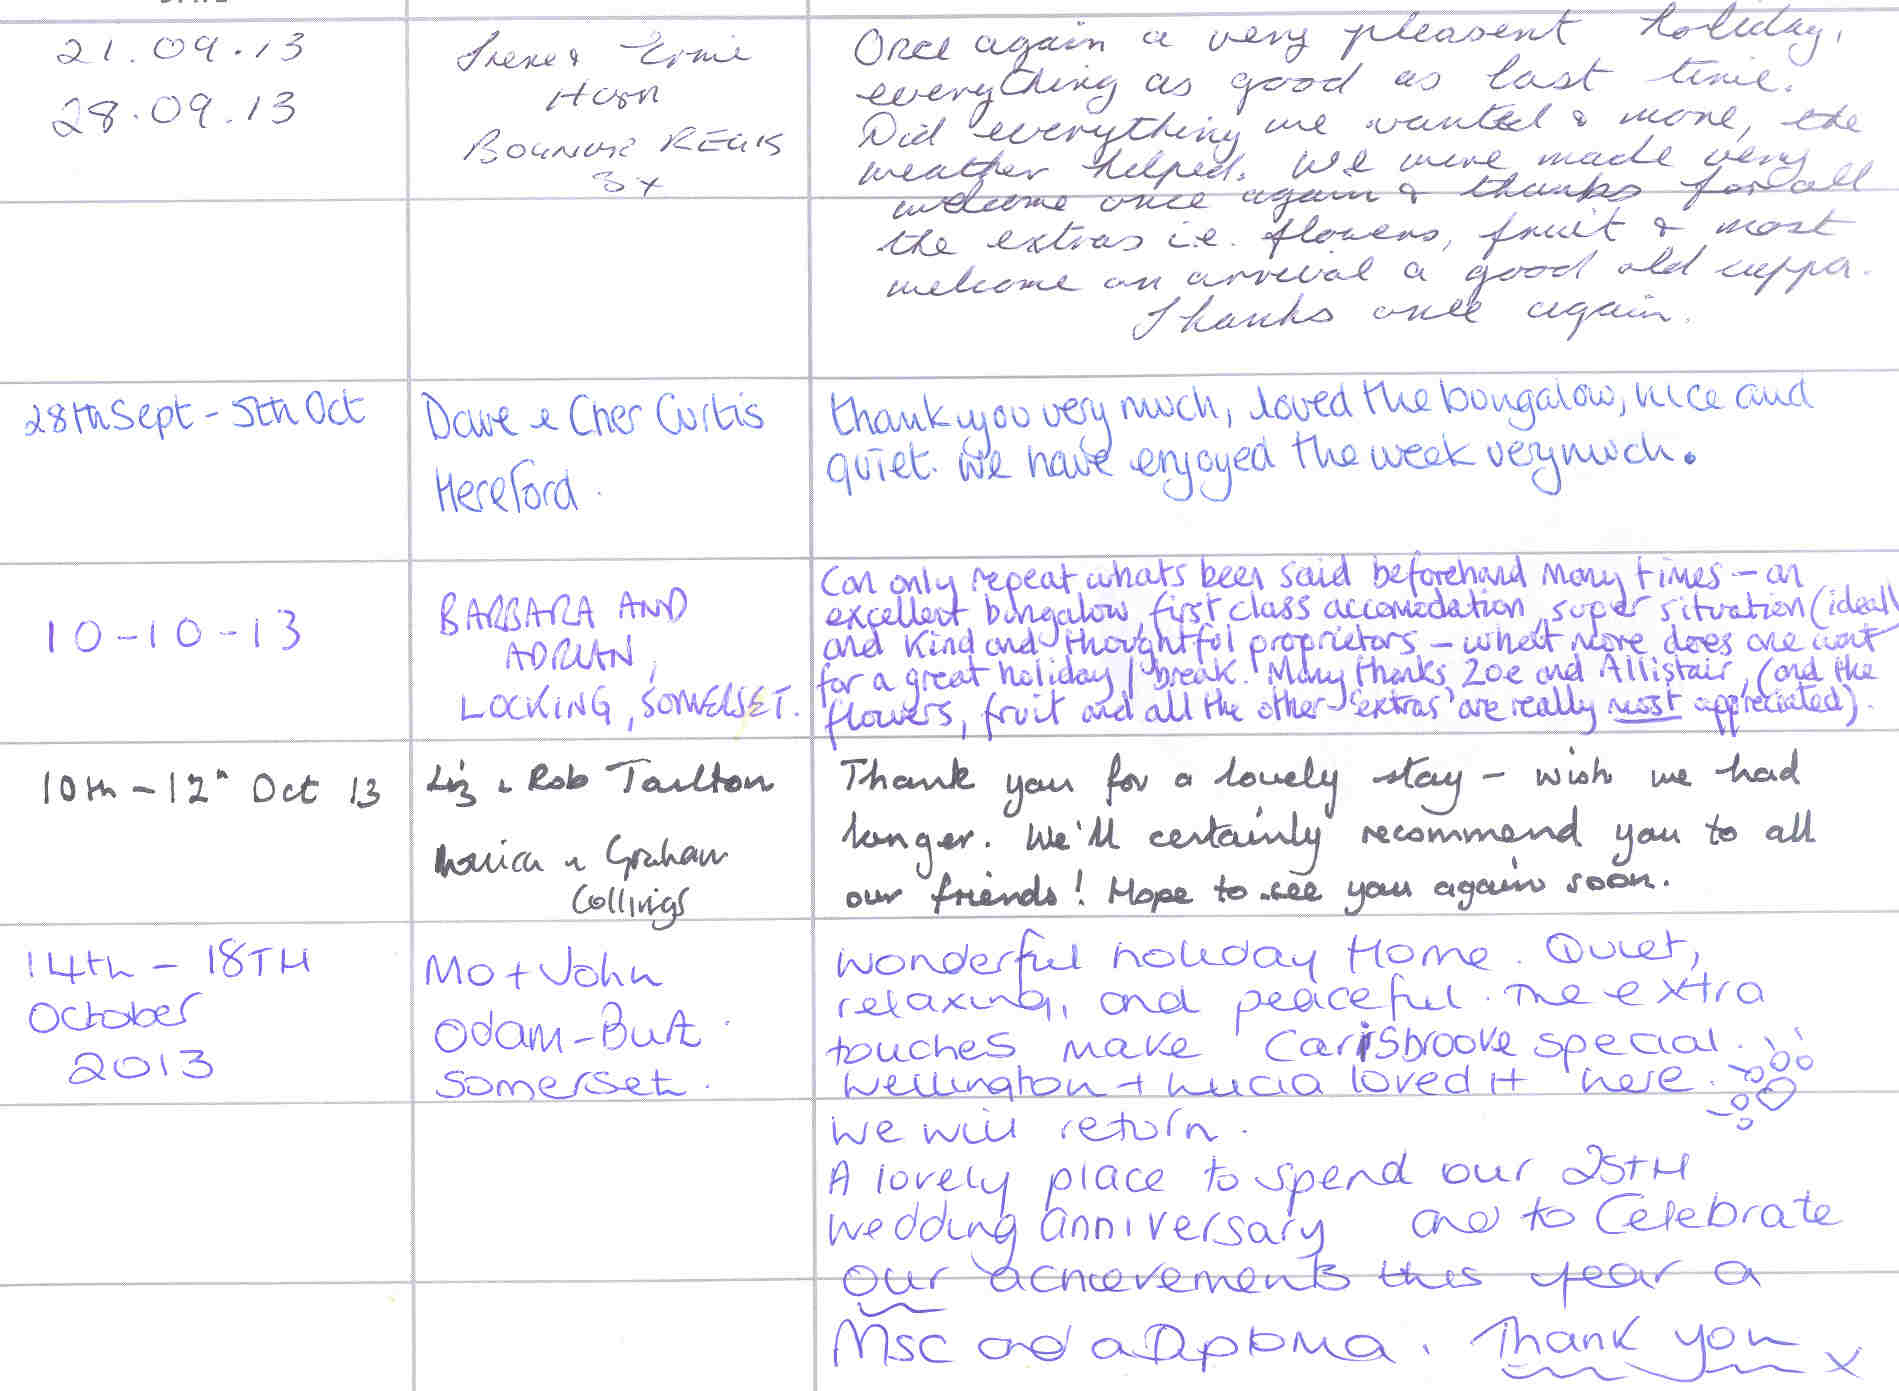 21.09.13
28.09.13
Irene & Ernie
Horn
BOGNOR REGIS
Once again a very pleasent holiday,
everything as good as last time.
Did everything we wanted & more, the
weather helped. We were made very
welcome once again & thanks for all
the extras i.e. flowers, fruit & most
welcome on arrival a good old cuppa.
Thanks once again.
28th Sept - 5th Oct
Dave & Cher Curtis
Hereford.
thank you very much, loved the bungalow, nice and
quiet. We have enjoyed the week very much.
10-10-13
BARBARA AND
ADRIAN,
LOCKING, SOMERSET.
Can only repeat whats been said beforehand many times - an
excellent bungalow, first class accomodation, super situation (ideal)
and kind and thoughtful proprietors - what more does one want
for a great holiday / break. Many thanks Zoe and Allistair, (and the
flowers, fruit and all the other 'extras' are really most appreciated).
10th - 12th Oct 13
Liz & Rob Tarlton
Monica & Graham
Collings
Thank you for a lovely stay - wish we had
longer. We'll certainly recommend you to all
our friends! Hope to see you again soon.
14th - 18TH
October
2013
Mo + John
Odam-Burt.
Somerset.
Wonderful holiday Home. Quiet,
relaxing, and peaceful. The extra
touches make Carisbrooke special.
Wellington + Lucia loved it here.
We will return.
A lovely place to spend our 25TH
wedding anniversary and to Celebrate
our achievements this year a
Msc and a Diploma. Thank you x